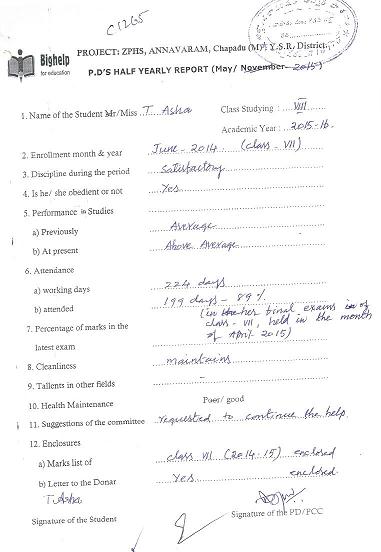 C1265
Bighelp
for education
PROJECT: ZPHS, ANNAVARAM, Chapadu (M) Y.S.R. District.
P.D'S HALF YEARLY REPORT (May/ November- 2015)
1. Name of the Student Mr/Miss T Asha Class Studying : VIII
Academic Year : 2015-16
2. Enrollment month & year June - 2014 (class - VII)
3. Discipline during the period Satisfactory
4. Is he/ she obedient or not Yes
5. Performance in Studies
a) Previously Average
b) At present Above Average
6. Attendance
a) working days 224 days
b) attended 199 days - 89%
7. Percentage of marks in the (in her final exams of
class - VII, held in the month
latest exam of April 2015)
8. Cleanliness maintains
9. Tallents in other fields -
10. Health Maintenance Poer/ good
11. Suggestions of the committee requested to continue the help.
12. Enclosures
a) Marks list of class VII (2014-15) enclosed
b) Letter to the Donar Yes enclosed.
T. Asha
Signature of the Student Signature of the PD/PCC